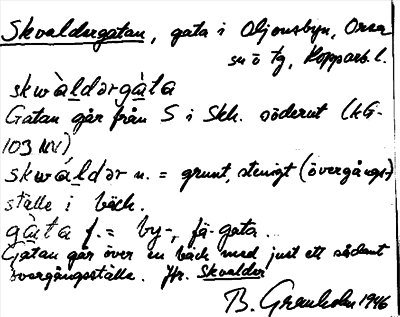 Skvaldergatan, gata i Oljonsbyn, Orsa
sn o tg, Kopparb. l.
skwàldərgàta
Gatan går från S i Skh. söderut (kG-
103 NV)
skwáldər n. = grunt, stenigt (övergångs-)
ställe i bäck.
gàta f. = by-, fä-gata.
Gatan går över en bäck med just ett sådant
övergångsställe. Jfr. Skvalder
B. Granholm 1946